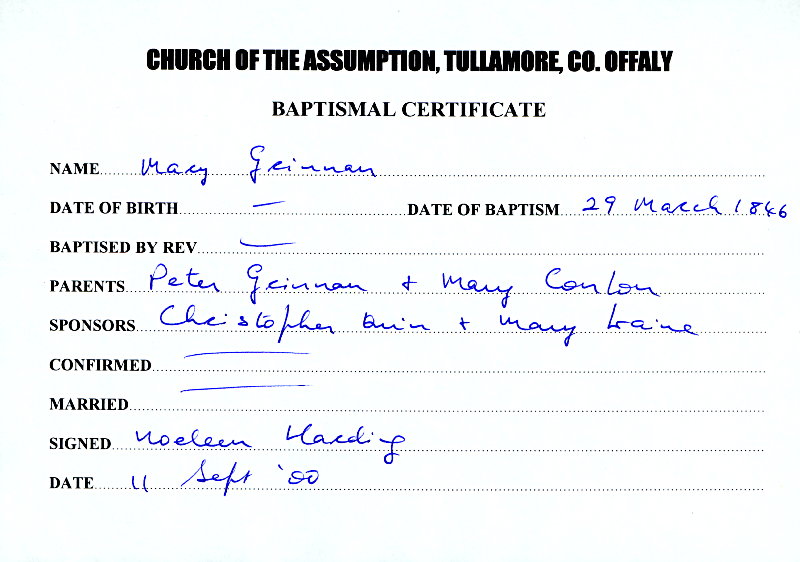 CHURCH OF THE ASSUMPTION, TULLAMORE, CO. OFFALY
BAPTISMAL CERTIFICATE
NAME Mary Grinnan
DATE OF BIRTH — DATE OF BAPTISM 29 March 1846
BAPTISED BY REV —
PARENTS Peter Grinnan + Mary Conlon
SPONSORS Christopher + Mary
CONFIRMED —
MARRIED —
SIGNED Noeleen Harding
DATE 11 Sept '00